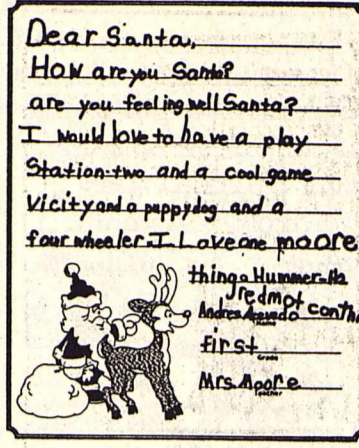 Dear Santa,
How are you Santa?
are you feeling well Santa?
I would love to have a play
Station-two and a cool game
Vicity and a puppy dog and a
four wheeler. I Love one moore
thing a Hummer-H2
redmot conth
Andres Acevado
Name
first
Grade
Mrs. Moore
Teacher